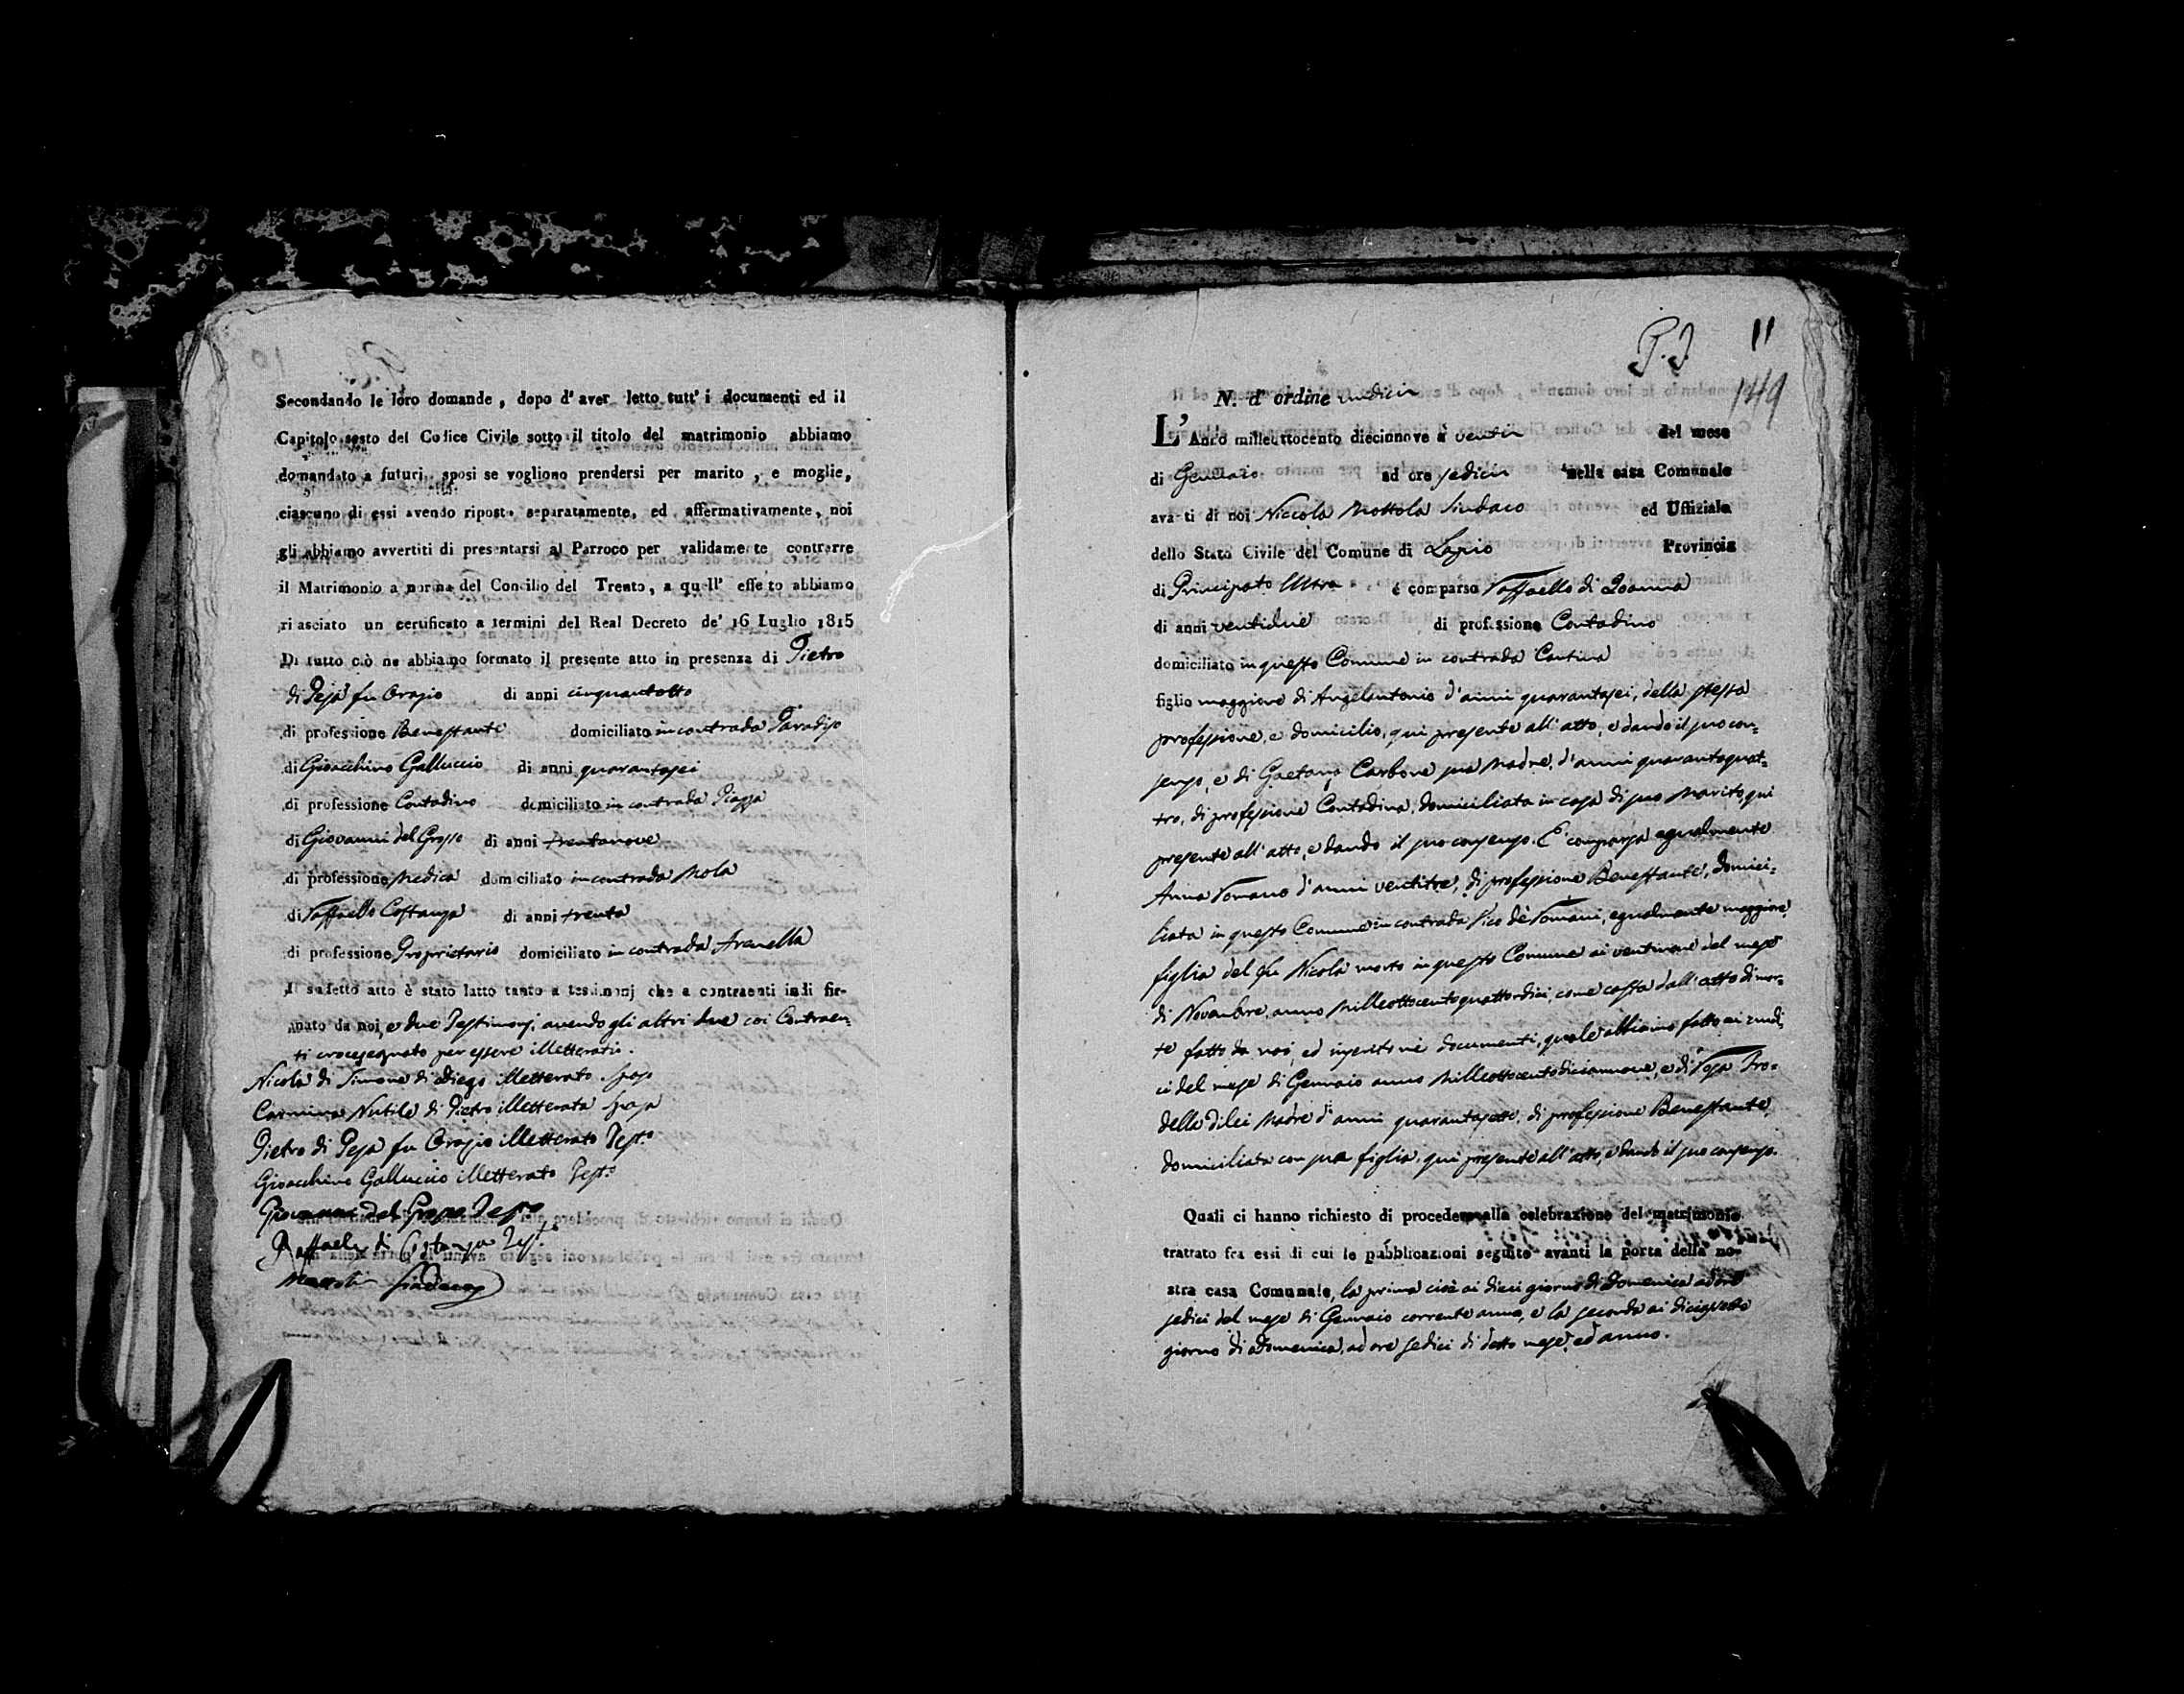 Secondando le loro domande, dopo d'aver letto tutt' i documenti ed il
Capitolo sesto del Codice Civile sotto il titolo del matrimonio abbiamo
domandato a futuri sposi se vogliono prendersi per marito, e moglie,
ciascuno di essi avendo riposto separatamente, ed affermativamente, noi
gli abbiamo avvertiti di presentarsi al Parroco per validamente contrarre
il Matrimonio a norma del Concilio del Trento, a quell' effetto abbiamo
rilasciato un certificato a termini del Real Decreto de' 16 Luglio 1815
Di tutto ciò ne abbiamo formato il presente atto in presenza di Pietro
di Pesa fu Orazio di anni cinquantotto
di professione Benestante domiciliato in contrada Paradiso
di Gioacchino Galluccio di anni quarantasei
di professione Contadino domiciliato in contrada Piazza
di Giovanni del Grosso di anni trentanove
di professione Medico domiciliato in contrada Mola
di Raffaello Costanza di anni trenta
di professione Proprietario domiciliato in contrada Aranella
Il sudetto atto è stato latto tanto a testimonj che a contraenti indi fir-
mato da noi, e due Testimonj, avendo gli altri due coi Contraen=
ti crocesegnato per essere illetterati.
Nicola di Simone di Diego illetterato sposo
Carmina Nutile di Pietro illetterata sposa
Pietro di Pesa fu Orazio illetterato Test.o
Gioacchino Galluccio illetterato Test.o
Giovanni del Grosso Test.o
Raffaele di Costanza Test.o
Mottola Sindaco
11
149
N. d' ordine undici
L' Anno milleottocento diecinnove a venti del mese
di Gennaio ad ore sedici nella casa Comunale
avanti di noi Niccola Mottola Sindaco ed Uffiziale
dello Stato Civile del Comune di Lapio Provincia
di Principato Ultra è comparso Raffaello di Ioanna
di anni ventidue di professione Contadino
domiciliato in questo Comune in contrada Cantina
figlio maggiore di Angelantonio d'anni quarantasei, della stessa
professione, e domicilio, qui presente all'atto, e dando il suo con=
senso, e di Gaetana Carbone sua Madre, d'anni quarantaquat=
tro, di professione Contadina, domiciliata in casa di suo Marito, qui
presente all'atto, e dando il suo consenso. E' comparsa egualmente
Anna Romano d'anni ventitre, di professione Benestante, domici=
liata in questo Comune in contrada Vico de' Romani, egualmente maggiore
figlia del fu Nicola morto in questo Comune ai ventinove del mese
di Novembre, anno Milleottocentoquattordici, come costa dall'atto di mor=
te fatto da noi, ed inserito ne' documenti, quale abbiamo fatto ai undi,
ci del mese di Gennaio anno Milleottocentodiciannove, e di Rosa Tro=
della di lei Madre d'anni quarantasette, di professione Benestante
domiciliata con sua figlia, qui presente all'atto, e dando il suo consenso.
Quali ci hanno richiesto di procedere alla celebrazione del matrimonio
trattato fra essi di cui le pubblicazioni seguite avanti la porta della no-
stra casa Comunale, la prima cioè ai dieci giorno di Domenica ad ore
sedici del mese di Gennaio corrente anno, e la seconda ai diciasette
giorno di Domenica, ad ore sedici di detto mese, ed anno.